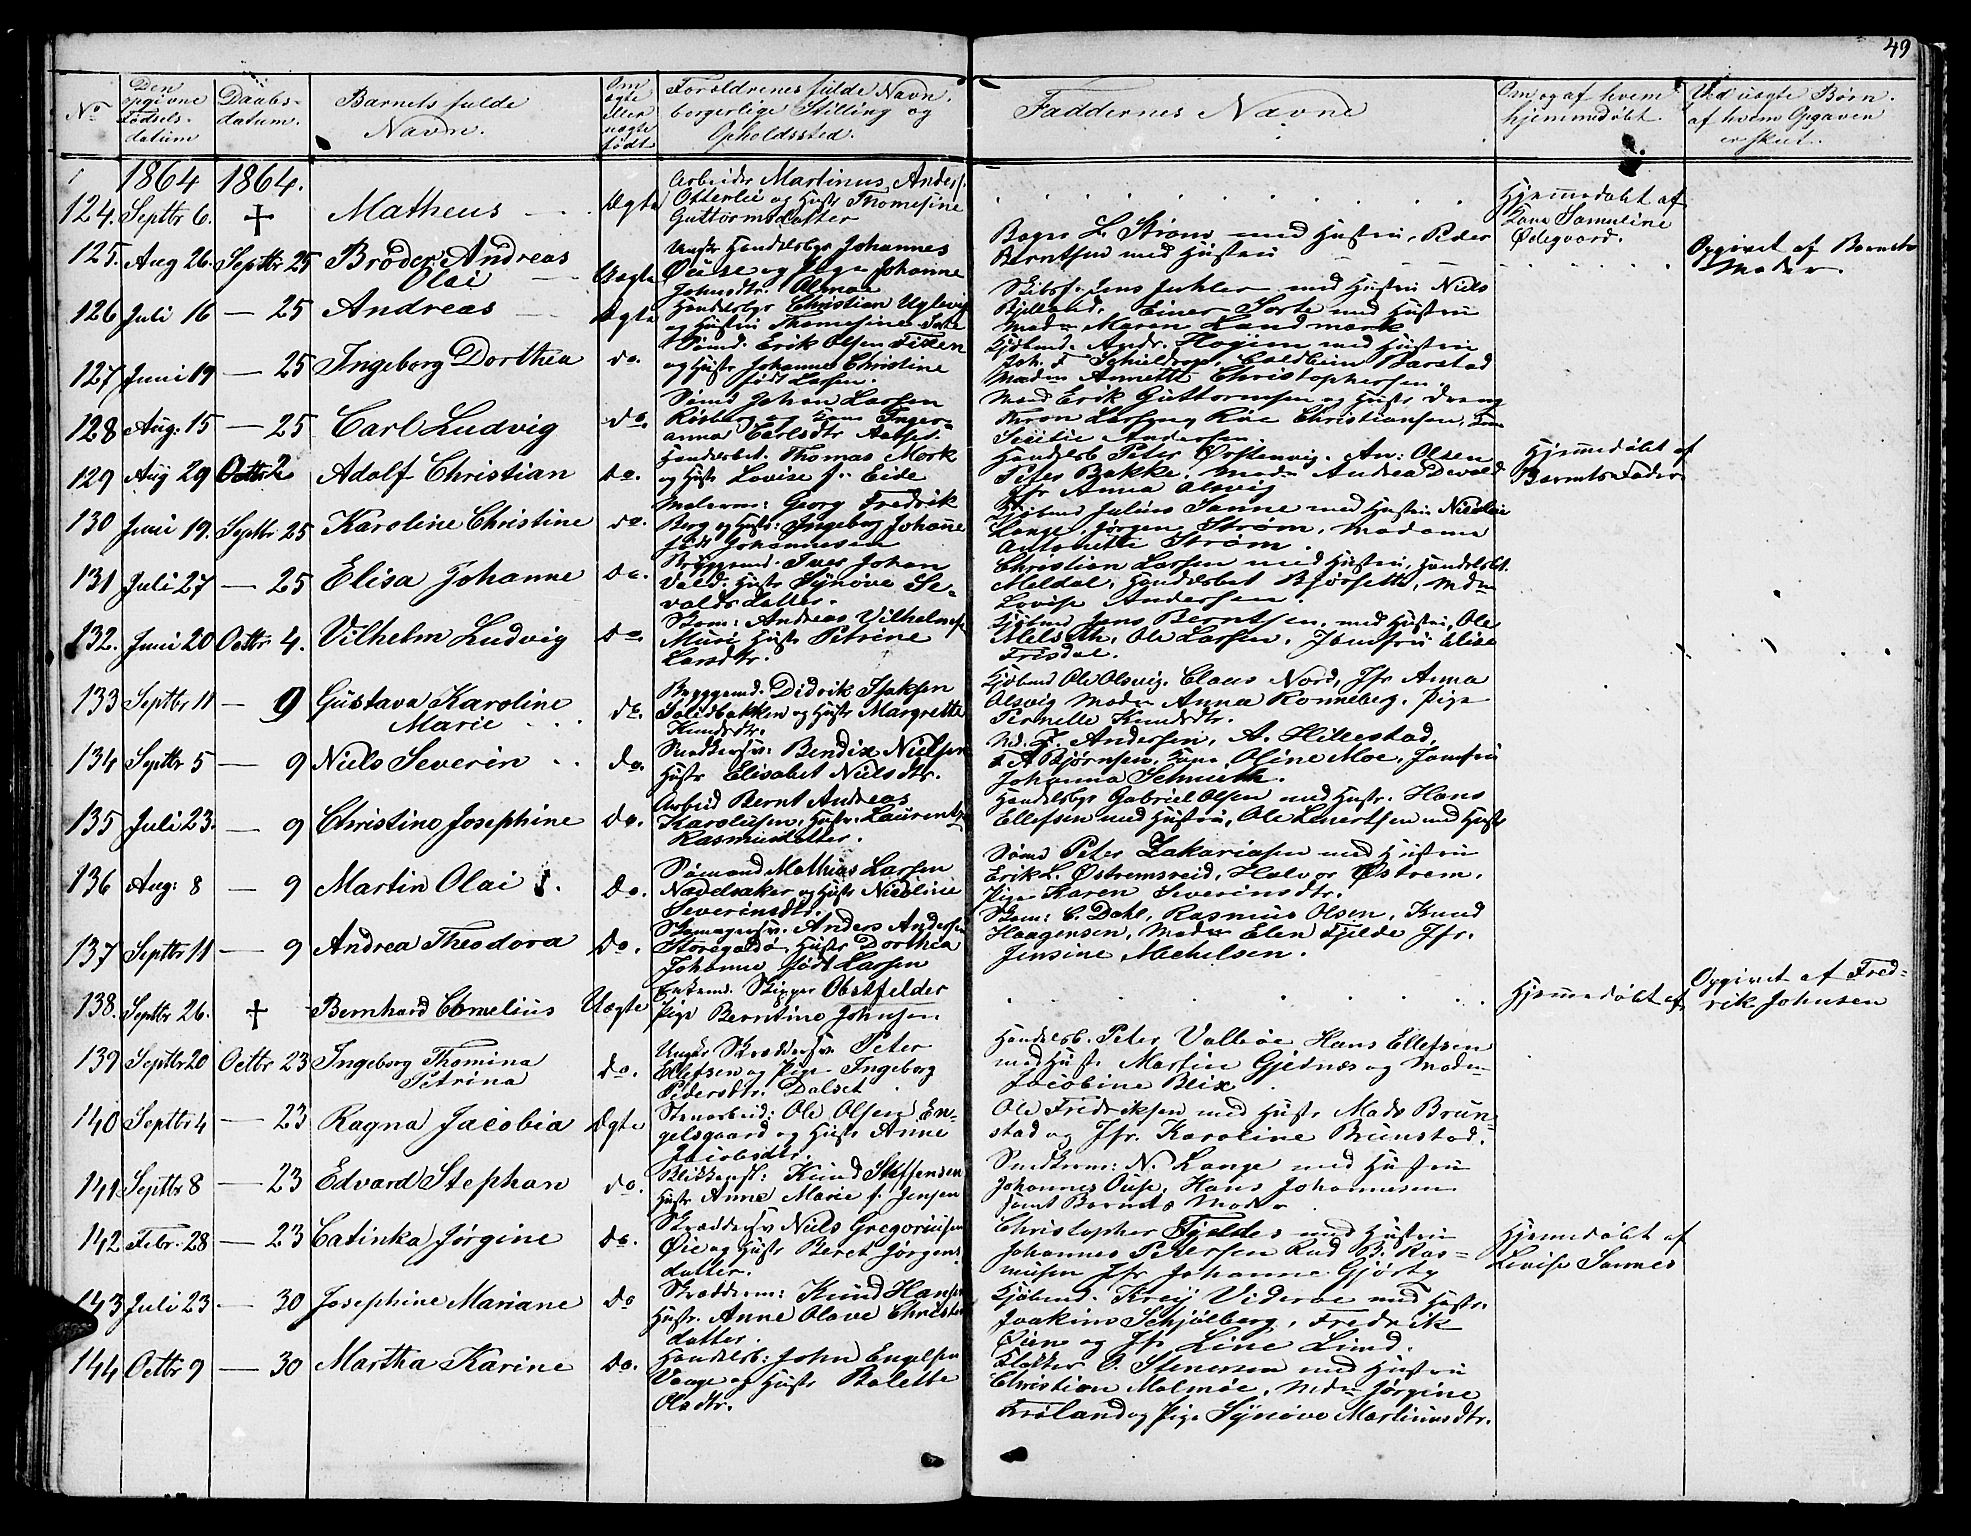 49
No
Den opgivne Fødsels-datum
Daabs-datum.
Barnets fulde Navn.
Om ægte eller uægte født
Forældrenes fulde Navn, borgerlige Stilling og Opholdssted.
Faddernes Navne
Om og af hvem hjemmedøbt.
Ved uægte Børn af hvem Opgaven er skeet.
1864 1864.
124. Septbr 6. † Matheus Ægte
Arbeider Martinus Anders.
Otterlei og Hustr Thomesine
Guttormsdatter
Hjemmedøbt af
Kone Samueline
Ødegaard.
125. Aug 26. Septbr 25 Broder Andreas
Olai Uægte
Ungkr Handelsbgr Johannes
Øuse og Pige Johanne
Johnsdtr.
Bager L. Strøm med Hustru, Peder
Berntsen med Hustru
Opgivet af Barnets
Moder.
126 Juli 16 — 25 Andreas Ægte
Handelsbgr Christian Uglevig
og Hustru Thomesine Sorte
Skibsf. Jens med Hustru Niels
Einer Sorte med Hustru
Madm Maren Landmark
127 Juni 19 — 25 Ingeborg Dorthea do.
Sømd. Erik Olsen Fixen
og Hustr Johanne Christine
født Larsen.
Kjøbmd. Andr. Høyem med Hustru
Joh. Schieldrop, Barstad
Madm Annette Christophersen.
128 Aug: 15 — 25 Carl Ludvig do.
Sømd Johan Larsen
og Kone Inger-
anna Carlsdtr
Mads Erik Guttormsen og Hustr Dreng
Larsen, Roe Christiansen,
Andersen.
129 Aug 29 Octbr 2 Adolf Christian do.
Handelsbet. Thomas Mork
og Hustr Lovise f. Eide
Handelsb Peter Ørstenvig. An: Olsen
Peter Bakke, Madm Andrea Devold
Jfr Anna Olsvig
Hjemmedøbt af
Barnets Fader
130 Juni 19. Septbr 25 Karoline Christine do.
Malerm: Georg Fredrik
Berg og Hustr: Ingeborg Johanne
født Johannesen
Kjøbmd Julius Sanne med Hustru Nicolai
Lange, Jørgen Strøm, Madame
Antonette Strøm.
131 Juli 27 — 25 Elisa Johanne do.
Bryggemd. Iver Johan
Vold: Hustr Synøve Se-
valdsdatter.
Christian Larsen med Hustru, Handelsbet.
Meldal, Handelsbet Bjørsetts, Mdm
Lovise Andersen.
132. Juni 20 Octbr 4. Vilhelm Ludvig do.
Skom: Andreas Vilhelms.
Muri Hustr Petrine
Larsdtr.
Kjøbmd Jens Berntsen, med Hustru, Ole
Ulelseth, Ole Larsen, Jomfru Elise
Frisdal.
133 Septbr 11 — 9 Gustava Karoline
Marie do.
Bryggemd. Didrik Isaksen
Solidbakken og Hustr Margrethe
Knudsdtr.
Kjøbmd Ole Olsvig. Claus Nord, Jfr Anna
Olsvig Madm Anna Rønneberg, Pige
Pernelle Knudsdtr.
134 Septbr 5 — 9 Niels Severin do.
Snedkersv: Bendix Nielsen
Hustr Elisabet Nielsdtr.
Andersen, A. Hillestad,
A Bjørnsen, Kone Oline Moe, Jomfru
Johanna Schmeth.
135 Juli 23. — 9 Christine Josephine do.
Arbeid Bernt Andreas
Karolusen, Hustr. Laurentze
Rasmusdatter.
Handelsbgr Gabriel Olsen med Hustr. Hans
Ellefsen med Hustru, Ole Lenertsen med Hustr
136 Aug: 8 — 9 Martin Olai do.
Sømand Mathias Larsen
Nævelsaker og Hustr Nicoline
Severinsdtr.
Sømd Peter Zakariasen med Hustru
Erik L. Østremsreid, Halvor Østrem,
Pige Karen Severinsdtr.
137 Septbr 11 — 9 Andrea Theodora do.
Skomagersv. Anders Andersen
Storegadø, Hustr Dorthea
Johanne født Larsen
Skom: C. Dahl, Rasmus Olsen, Knud
Haagensen, Madm Elen Fjelde Jfr.
Jensine Mechelsen.
138. Septbr 26. † Bernhard Cornelius Uægte
Enkemd. Skipper Obstfelder
Pige Berntine Johnsen.
Hjemmedøbt af
Opgivet af Fred-
rik Johnsen
139 Septbr 20 Octbr 23 Ingeborg Thomina
Petrina do.
Ungkr Skræddersv. Peter
Ellefsen og Pige Ingeborg
Pedersdtr. Dalset.
Handelsb. Peter Valleøe Hans Ellefsen
med Hustr Martin Gjelnæs og Madm
Jacobine Blix
140 Septbr 4 — 23 Ragna Jacobia Ægte
Stenarbeid: Ole Olsen En-
gelsgaard og Hustr Anne
Jacobsdtr.
Ole Fredriksen med Hustr Mads Brun-
stad og Jfr. Karoline Brunstad.
141 Septbr 8 — 23 Edvard Stephan do.
Blikkensl: Knud Steffensen
Hustr Anne Marie f. Jensen
Snedkerm: N. Lange med Hustru
Johannes Øuse, Hans Johannesen
samt Barnets Moder
142 Febr. 28 — 23 Catinka Jørgine do.
Skræddersv Niels Gregoriusen
Øie og Hustr Beret Jørgens-
datter.
Christopher Fjeldes med Hustru
Johannes Pedersen Rud B. Ras-
musen Jfr Johanne Gjørtz
Hjemmedøbt af
Lovise Sannes
143 Juli 23 — 30 Josephine Mariane do
Skrædderm: Knud Hansen
Hustr. Anne Olave Christen-
datter.
Kjøbmd. Kreij Videroe med Hustr.
Joakim Schjølberg, Fredrik
Øien og Jfr Line Lund.
144 Octbr 9 — 30 Martha Karine do.
Handelsb: John Engelsen
Vaage og Hustr Bolette
Olsdtr.
Klokker O. Stenersen med Hustru
Christian Malmøe, Mdm Jørgine
Frøland og Pige Synøve Martinusdtr.